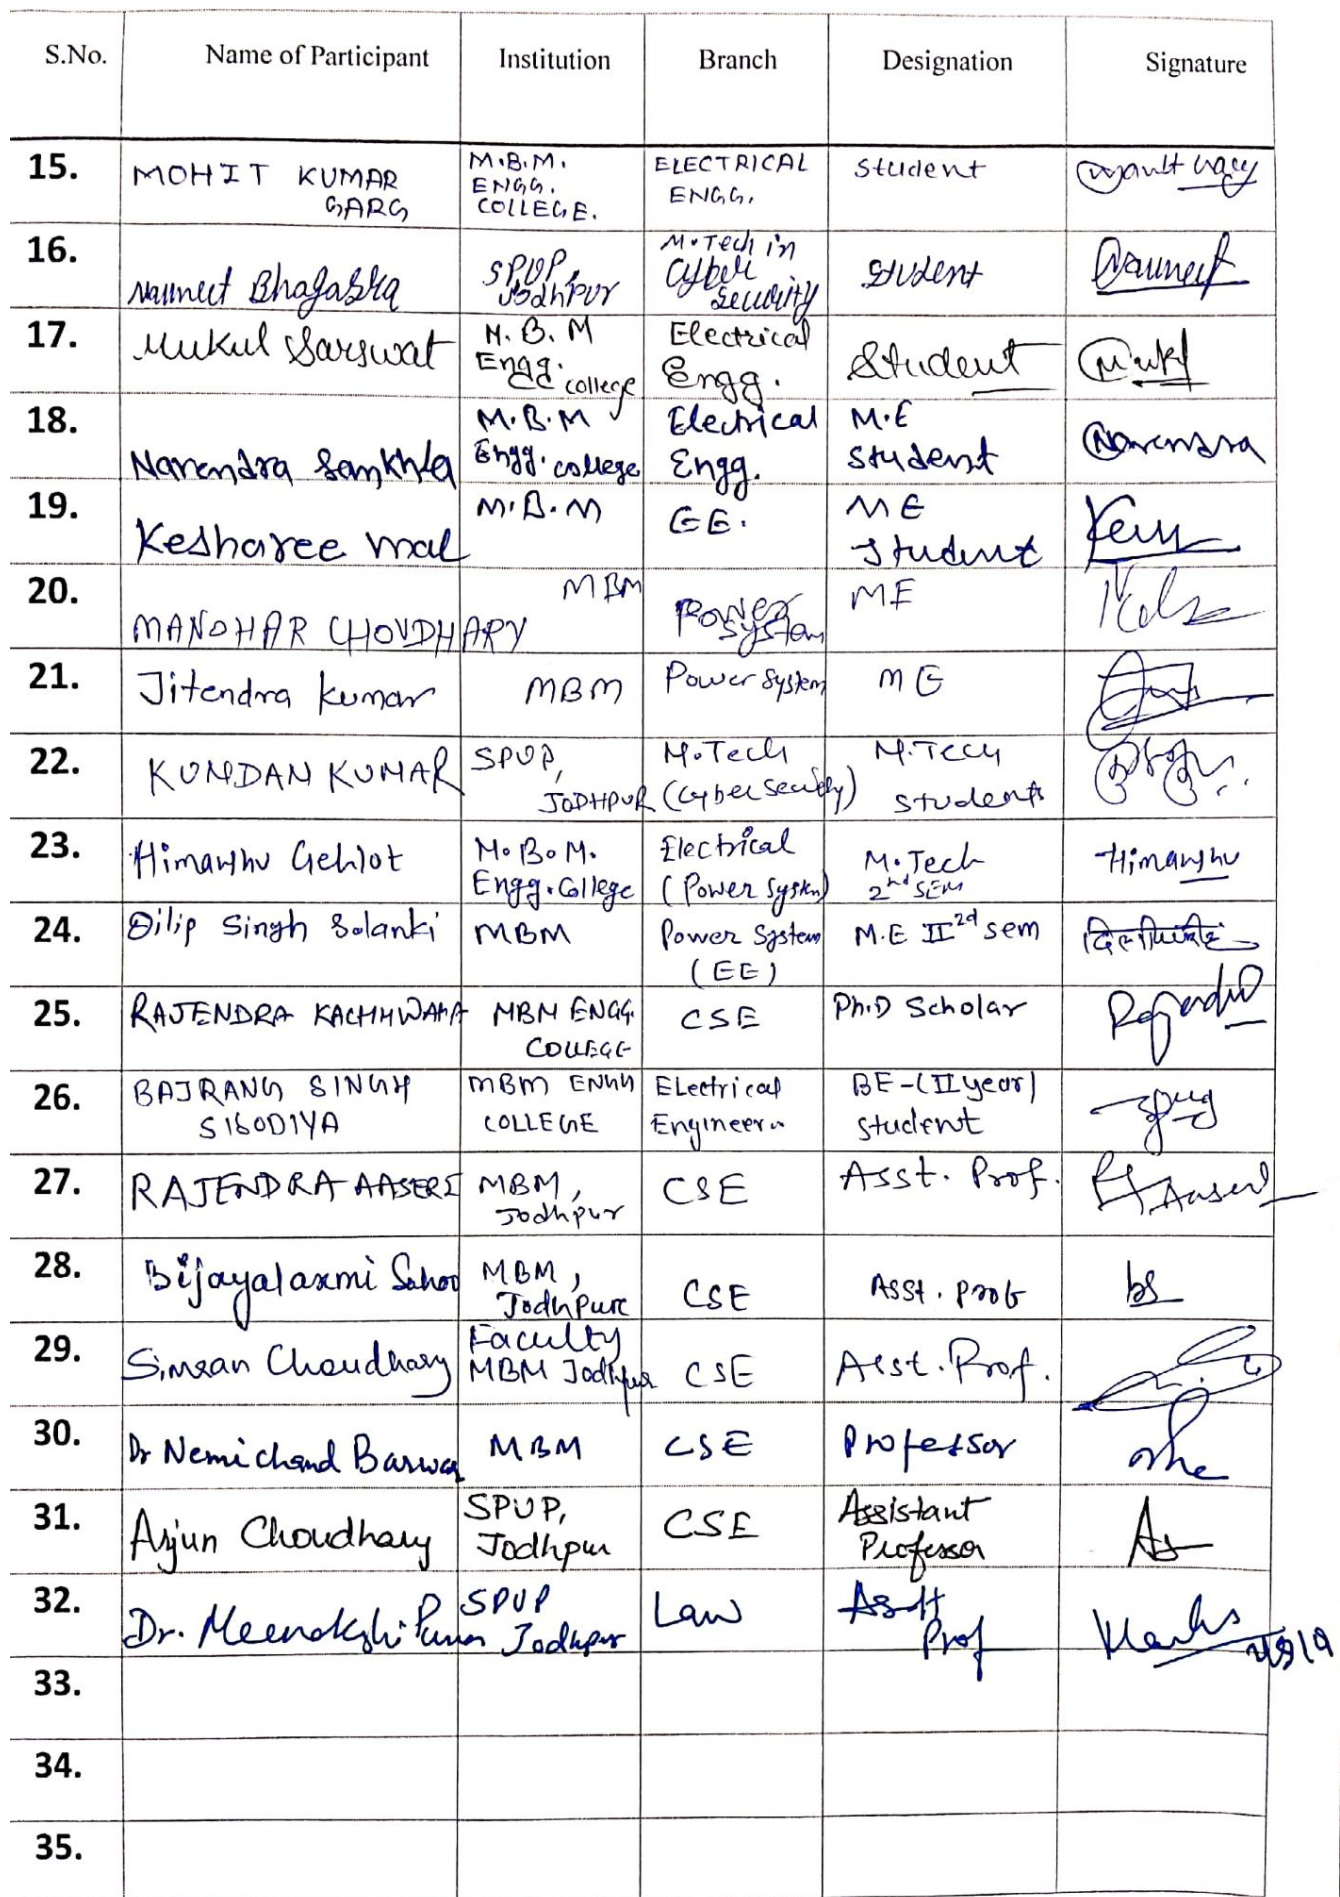 S.No. Name of Participant Institution Branch Designation Signature
15. MOHIT KUMAR GARG M.B.M. ENGG. COLLEGE. ELECTRICAL ENGG. Student
16. Navneet SPUP, Jodhpur M.Tech in Cyber Security Student Navneet
17. Mukul Sarswat M.B.M Engg. college Electrical Engg. Student
18. Narendra Sankhla M.B.M Engg. college Electrical Engg. M.E Student Narendra
19. Kesharee mal M.B.M EE. ME Student
20. MANOHAR CHOUDHARY MBM Power System ME
21. Jitendra Kumar MBM Power System ME
22. KUNDAN KUMAR SPUP, JODHPUR M.Tech (Cyber Security) M.Tech Student
23. Himanshu Gehlot M.B.M. Engg. College Electrical (Power System) M.Tech 2nd SEM Himanshu
24. Dilip Singh Solanki MBM Power System (EE) M.E II2d sem
25. RAJENDRA KACHHWAHA MBM ENGG. COLLEGE CSE Ph.D Scholar
26. BAJRANG SINGH SISODIYA MBM ENGG COLLEGE Electrical Engineer.. BE-(II year) Student
27. RAJENDRA AASERI MBM, Jodhpur CSE Asst. Prof.
28. Bijayalaxmi Sahoo MBM, Jodhpur CSE Asst. Prof bs
29. Simran Choudhary Faculty MBM Jodhpur CSE Asst. Prof.
30. Dr Nemichand Barwar MBM CSE Professor
31. Arjun Choudhary SPUP, Jodhpur CSE Assistant Professor
32. Dr. Meenakshi SPUP Jodhpur Law Asstt Prof
33.
34.
35.